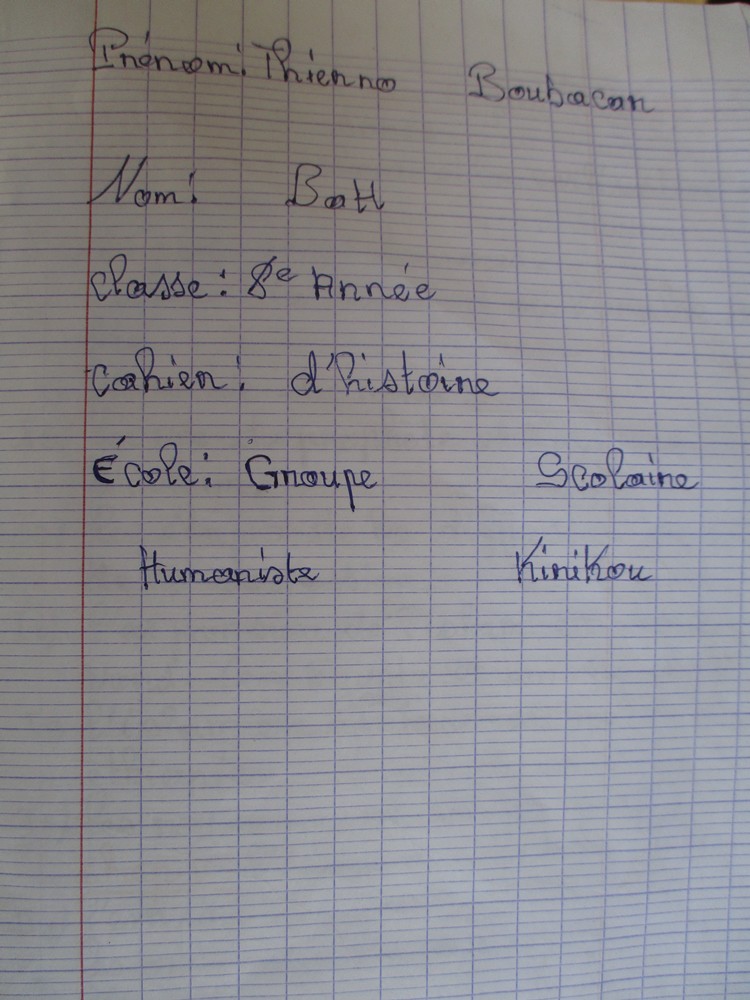 Prénom: Thierno Boubacar
Nom: Bah
Classe: 8e Année
Cahier: d'histoire
École: Groupe Scolaire
Humaniste Kirikou